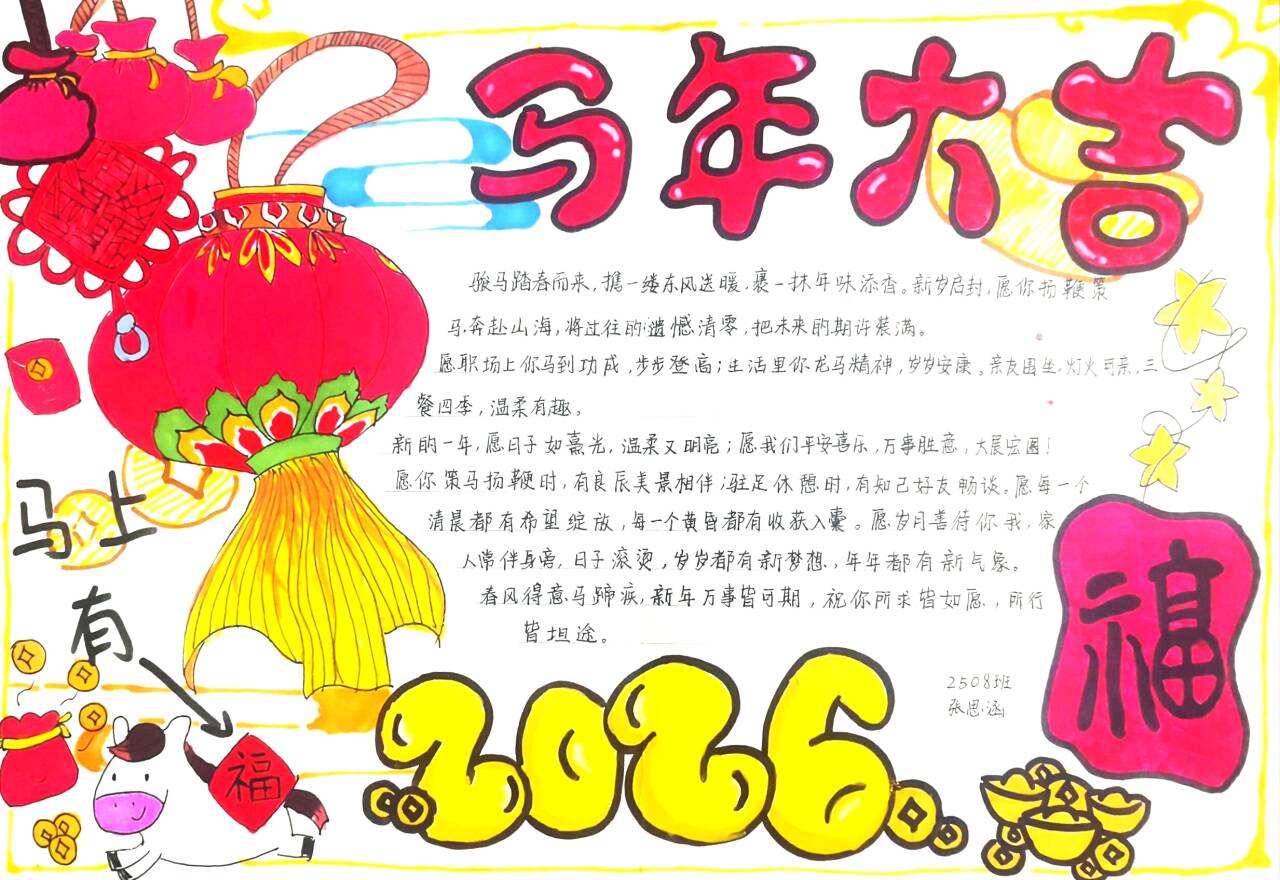 马年大吉
骏马踏春而来，携一缕东风送暖，裹一抹年味添香。新岁启封，愿你扬鞭策
马奔赴山海，将过往的遗憾清零，把未来的期许装满。
愿职场上你马到功成，步步登高；生活里你龙马精神，岁岁安康。亲友围坐，灯火可亲，三
餐四季，温柔有趣。
新的一年，愿日子如熹光，温柔又明亮；愿我们平安喜乐，万事胜意，大展宏图！
愿你策马扬鞭时，有良辰美景相伴；驻足休憩时，有知己好友畅谈。愿每一个
清晨都有希望绽放，每一个黄昏都有收获入囊。愿岁月善待你我，家
人常伴身旁，日子滚烫，岁岁都有新梦想，年年都有新气象。
春风得意马蹄疾，新年万事皆可期，祝你所求皆如愿，所行
皆坦途。
2508班
张思涵
马上
有
福
福
2026